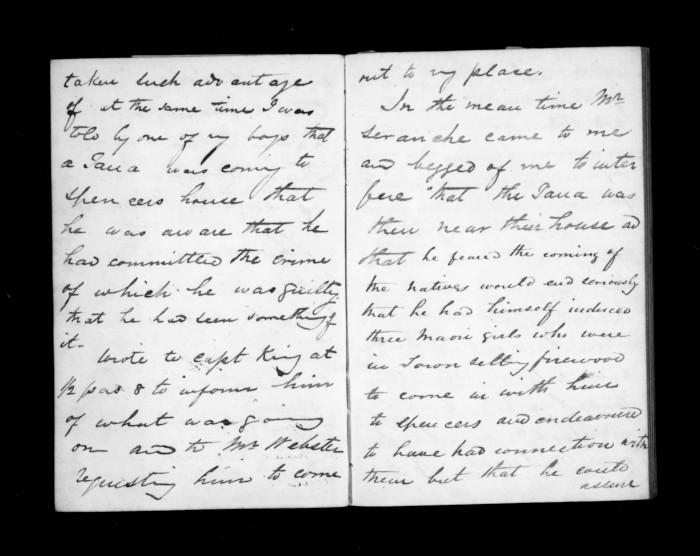 taken such advantage
of at the same time I was
told by one of my boys that
a Taua was coming to
Spencers house that
he was aware that he
had committed the crime
of which he was guilty,
that he had seen something of
it -
Wrote to Capt King at
½ pas 8 to inform him
of what was going
on and to Mr Webster
requesting him to come
out to my place.
In the mean time Mr
Seranche came to me
and begged of me to inter
fere "that the Taua was
then near their house ad
that he feared the coming of
the natives would end seriously
that he had himself induced
three Maori girls who were
in Town selling firewood
to come in with him
to Spencers and endeavoured
to have had connection with
them but that he could
assure